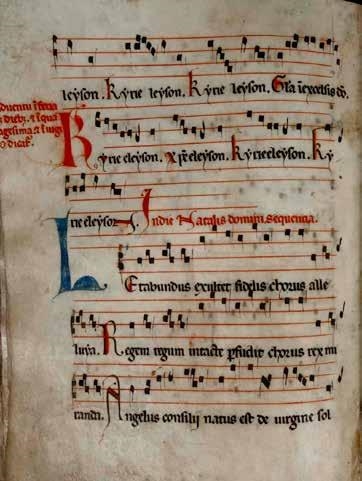 leyson. Kyrie leyson. Kyrie leyson. Gl'a i excelsis do.
Kyrie eleyson. xpe eleyson. kyrieeleyson. ky
rie eleyson. In die Natalis domini. sequencia.
Letabundus exultet fidelis chorus alle
luya. Regem regum intacte pfudit chorus rex mi
randa. Angelus consilij natus est de uirgine sol